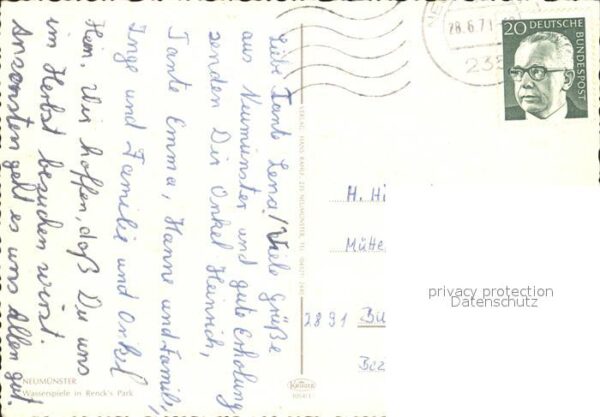 Liebe Tante Lena! Viele Grüße
aus Neumünster und gute Erholung
senden Dir Onkel Heinrich,
Tante Emma, Hanne und Familie,
Inge und Familie und Onkel
Hein. Wir hoffen, daß Du uns
im Herbst besuchen wirst.
Ansonsten geht es uns allen gut.
NEUMÜNSTER
Wasserspiele in Renck's Park
VERLAG: HANS
NEUMÜNSTER
Krüger
28.6.71
235
20 DEUTSCHE
BUNDESPOST
H. Hi
Mütte
2891 Bu
Bez
privacy protection
Datenschutz